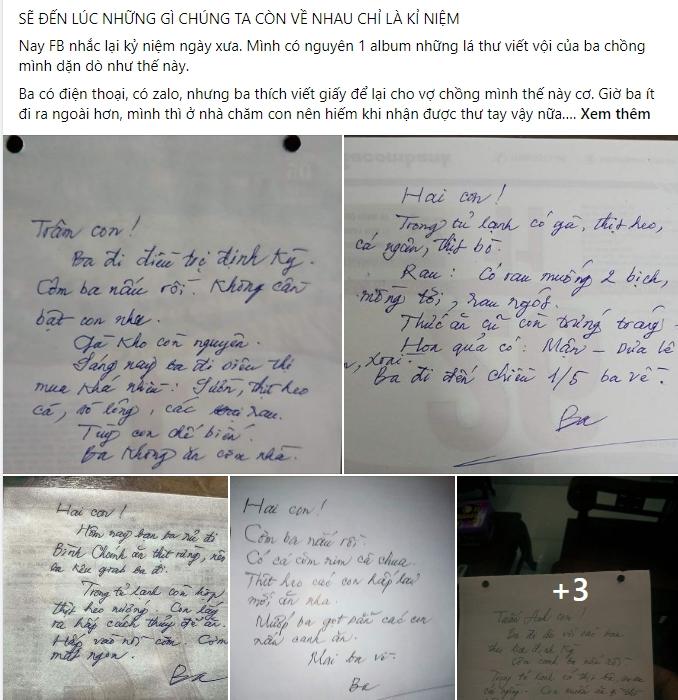 SẼ ĐẾN LÚC NHỮNG GÌ CHÚNG TA CÒN VỀ NHAU CHỈ LÀ KỈ NIỆM
Nay FB nhắc lại kỷ niệm ngày xưa. Mình có nguyên 1 album những lá thư viết vội của ba chồng
mình dặn dò như thế này.
Ba có điện thoại, có zalo, nhưng ba thích viết giấy để lại cho vợ chồng mình thế này cơ. Giờ ba ít
đi ra ngoài hơn, mình thì ở nhà chăm con nên hiếm khi nhận được thư tay vậy nữa.... Xem thêm
Trâm con!
Ba đi điều trị định kỳ.
Cơm ba nấu rồi. Không cần
bật con nha.
Gà kho còn nguyên.
Sáng nay ba đi siêu thị
mua khá nhiều: Sườn, thịt heo
cá, bò lông, các rau.
Tùy con chế biến.
Ba không ăn cơm nhà.
Hai con!
Trong tủ lạnh có gà, thịt heo,
cá ngân, thịt bò.
Rau: Có rau muống 2 bịch,
mồng tơi, rau ngót.
Thức ăn cũ còn trứng tráng
Hoa quả có: Mận - Dưa lê
, xoài.
Ba đi đến chiều 1/5 ba về.
Ba
Hai con!
Hôm nay bạn ba rủ đi
Bình Chánh ăn thịt rừng, nên
ba kêu grab ba đi.
Trong tủ lạnh còn hộp
thịt heo nướng. Con lấy
ra hấp cách thủy để ăn.
Hấp vào nồi cơm. Cơm
mới ngon.
Ba
Hai con!
Cơm ba nấu rồi.
Có cá cơm rim cà chua.
Thịt heo các con hấp lại
mới ăn nha.
Mướp ba gọt sẵn các con
nấu canh ăn.
Mai ba về.
Ba
+3
Tuấn Anh con!